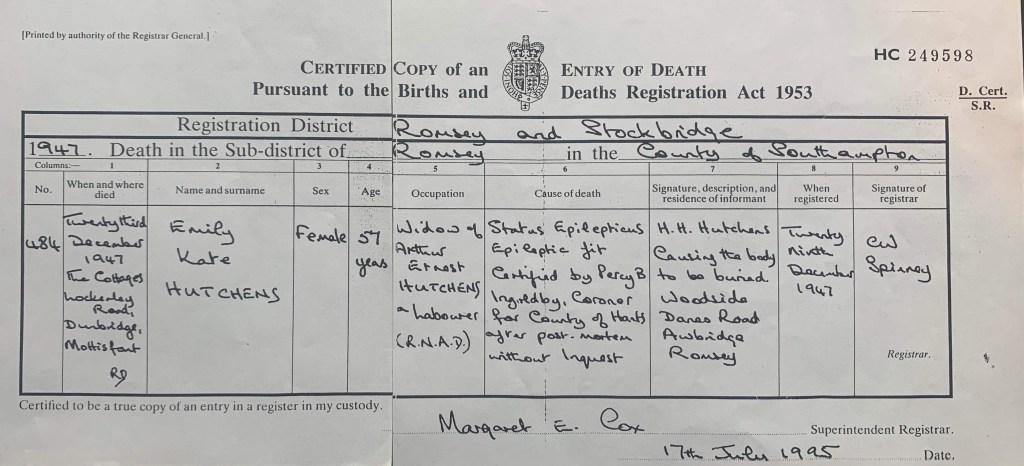 [Printed by authority of the Registrar General.]
HC 249598
CERTIFIED COPY OF AN ENTRY OF DEATH
Pursuant to the Births and Deaths Registration Act 1953
D. Cert.
S.R.
Registration District Romsey and Stockbridge
1947. Death in the Sub-district of Romsey in the County of Southampton
Columns:— 1 2 3 4 5 6 7 8 9
No.
When and where
died
Name and surname
Sex
Age
Occupation
Cause of death
Signature, description, and
residence of informant
When
registered
Signature of
registrar
484
Twenty third
December
1947
The Cottages
Lockerley
Road,
Dunbridge,
Mottisfont
RD
Emily
Kate
HUTCHENS
Female
57
years
Widow of
Arthur
Ernest
HUTCHENS
a Labourer
(R.N.A.D.)
Status Epilepticus
Epileptic fit
Certified by Percy B
Ingoldby, Coroner
for County of Hants
after post-mortem
without Inquest
H.H. Hutchens
Causing the body
to be buried
Woodside
Danes Road
Awbridge
Romsey
Twenty
Ninth
December
1947
CW
Spinney
Registrar.
Certified to be a true copy of an entry in a register in my custody.
Margaret E. Cox Superintendent Registrar.
17th July 1995 Date.